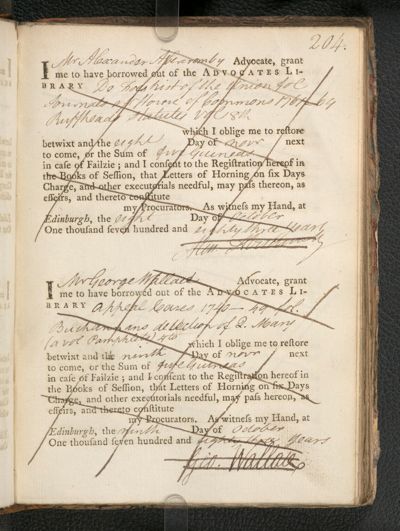 204.
I Mr Alexander Abercromby Advocate, grant
me to have borrowed out of the ADVOCATES LI-
BRARY De Foes hist of the Union fol
Journals of House of Commons 1764
Ruffheads Statutes vol 8th
which I oblige me to reſtore
betwixt and the eight Day of novr next
to come, or the Sum of five Guineas
in caſe of Failzie; and I conſent to the Regiſtration hereof in
the Books of Seſſion, that Letters of Horning on ſix Days
Charge, and other executorials needful, may paſs thereon, as
effeirs, and thereto conſtitute
my Procurators. As witneſs my Hand, at
Edinburgh, the eight Day of October
One thouſand ſeven hundred and eighty three years
I Mr George Wallace Advocate, grant
me to have borrowed out of the ADVOCATES LI-
BRARY Appeal Cases 1746 - 49 fol.
Buchannans detection of Q. Mary
(a vol Pamphlets) 4to
which I oblige me to reſtore
betwixt and the ninth Day of novr next
to come, or the Sum of five Guineas
in caſe of Failzie; and I conſent to the Regiſtration hereof in
the Books of Seſſion, that Letters of Horning on ſix Days
Charge, and other executorials needful, may paſs hereon, as
effeirs, and thereto conſtitute
my Procurators. As witneſs my Hand, at
Edinburgh, the ninth Day of October
One thouſand ſeven hundred and eighty three years
Geo. Wallace